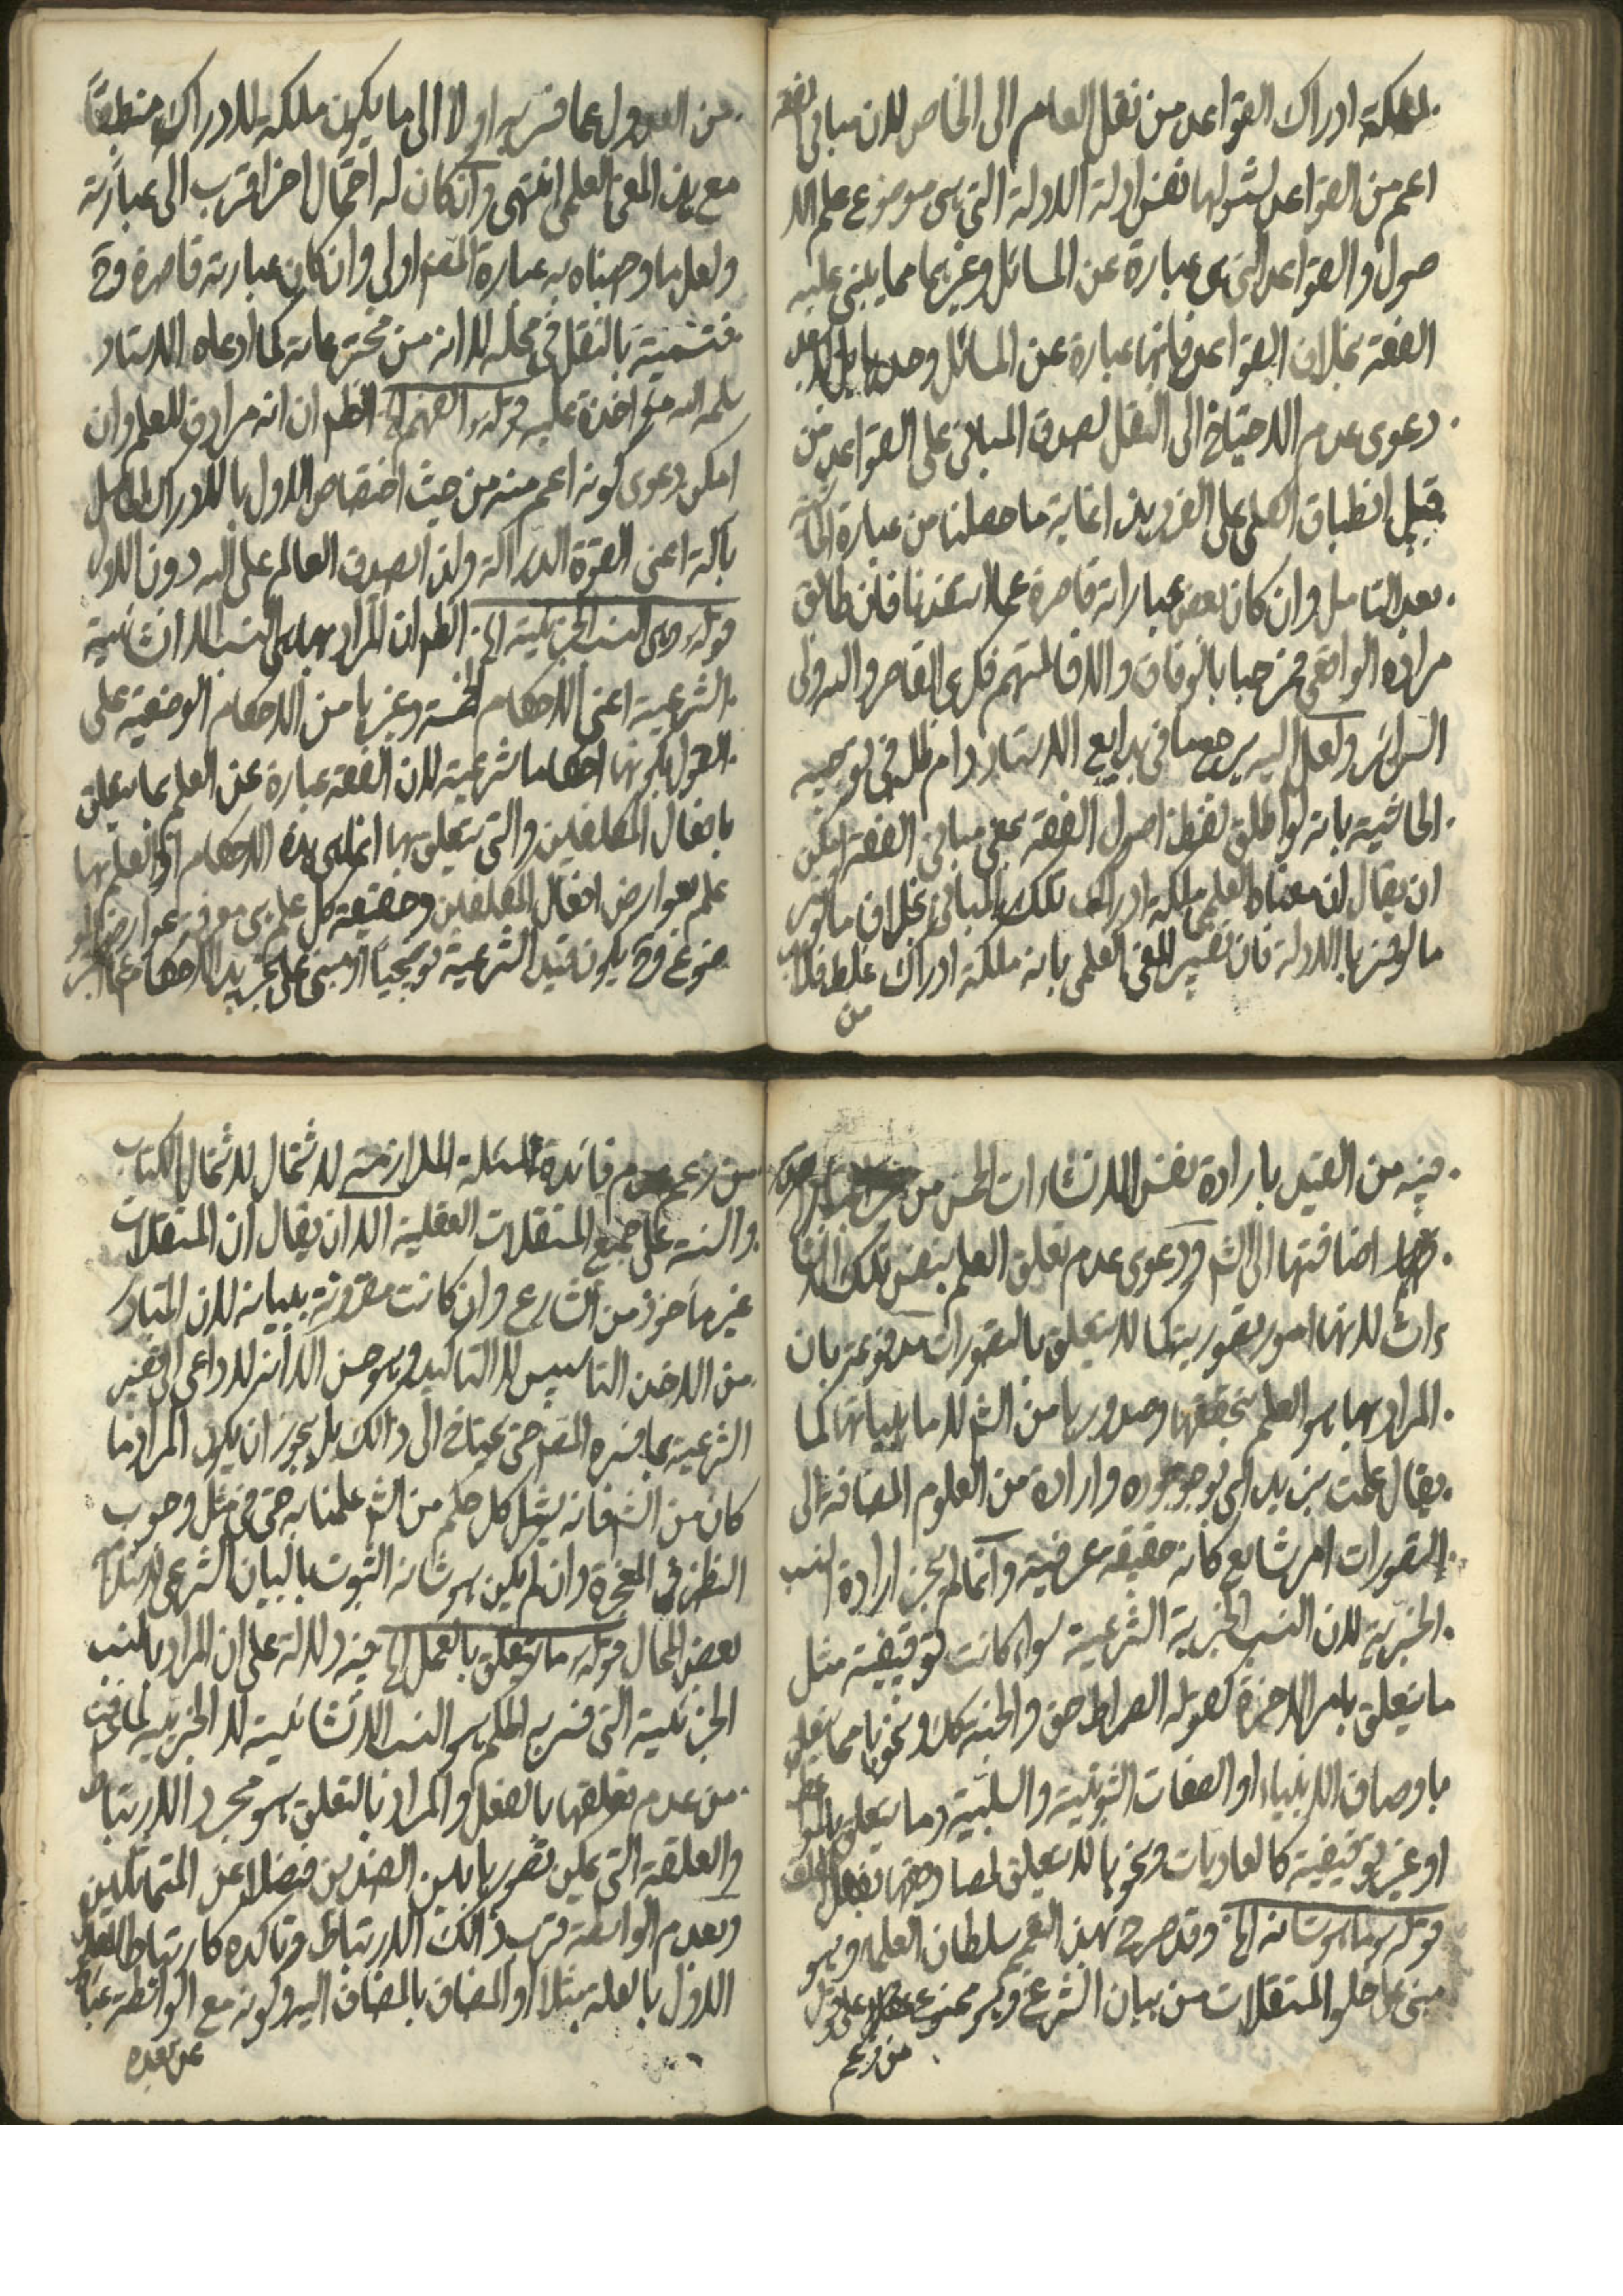 لملكة ادراك القواعد من نقل العام الى الخاص لان مبانى الفقه
اعم من القواعد لشمولها نفس ادلة الادلة التى هى موضوع علم الا
صول والقواعد التى هى عبارة عن المسائل وغيرهما مما يبتنى عليه
الفقه بخلاف القواعد فانها عبارة عن المسائل وحدها بل لا بعد
دعوى عدم الاحتياج الى النقل لصدق المبانى على القواعد من
قبيل انطباق الكلى على الفرد هذا غاية ما حصلنا من عبارة الحاشية
بعد التامل وان كان بعض عباراته قاصرة عما استفدنا فان طابق
مراده الواقعى فمرحبا بالوفاق والا فالمتهم فكرى القاصر والبه ولى
السرائر ولعل اليه يرجع ما فى بدايع الاستاد دام ظله فى توجيه
الحاشية بانه لو اطلق لفظ اصول الفقه بمعنى مبانى الفقه امكن
ان يقال ان معناه العلمى ملكة ادراك تلك المبانى بخلاف ما لو
ما لو فسر بالادلة فان تفسير المعنى العلمى بانه ملكة ادراك غلط فلابد
من
من العدول عما فسر به اولا الى ما يكون ملكة الادراك منطبقا
مع هذا المعنى العلمى انتهى وان كان له احتمال اخر اقرب الى عبارته
ولعل ما وجهناه به عبارة المصنف اولى وان كان عبارته قاصرة وح
فتسميته بالنقل فى محله لا انه من مخترعاته كما ادعاه الاستاد
سلمه الله مؤاخذة عليه قوله الفهم الخ الظم ان انه مرادف للعلم وان
امكن دعوى كونه اعم منه من حيث اختصاص الاول بالادراك الحاصل
بآلة اعنى القوة الدراكة ولذا لصدق العالم على الله دون الاول
قوله وهى النسب الجزئية الخ الظم ان المراد بها هى النسب الانشائية
الشرعية اعنى الاحكام الخمسة وغيرها من الاحكام الوضعية على
القول بكونها احكاما شرعية لان الفقه عبارة عن العلم بما يتعلق
بافعال المكلفين والتى يتعلق بها انما هى هذه الاحكام اذ العلم بها
علم بعوارض افعال المكلفين وحقيقة كل علم هى معرفة عوارض المو
ضوع وح يكون قيد الشرعية توضيحيا او مبنى على تجريد الاحكام عما اخبر
فيه من القيد بارادة نفس الانشاءات الخمس من
اضافتها الى الشرع ودعوى عدم تعلق العلم بنفس تلك الانشا
ءات لانها امور تصورية كما لا يتعلق بالتصورات مدفوعة بان
المراد بها هو العلم بتحققها وصدورها من الشرع لا ما هياتها كما
يقال علمت بزيد اى بوجوده وارادة من العلوم المضافة الى
التصورات امر شايع كانه حقيقة عرفية وانما لم يجز ارادة النسب
الخبرية لان النسب الخبرية الشرعية سواء كانت توقيفية مثل
ما يتعلق بامر الاخرة كقوله الصراط حق والجنة كك ونحوها مما يتعلق
باوصاف الانبياء او الصفات الثبوتية والسلبية وما يتعلق بالمو
او غير توقيفية كالعاديات ونحوها لا يتعلق لمصادقها بفعل المكلف
قوله وما هو شانه الخ وقد صرح بهذا القسم سلطان العلماء وهو
مبنى على خلو المستقلات من بيان الشرع وهو ممنوع على قول
من زعم
من زعم عدم فائدة لمسئلة الملازمة لاشتمال لاشتمال الكتاب
والسنة على جميع المستقلات العقلية الا ان يقال ان المستقلات
غير مأخوذ من الشارع وان كانت مقرونة ببيانه لان المتبادر
من الاخذ التاسيس لا التاكيد وهو حسن الا انه لا داعى الى تفسير
الشرعية بما فسره المصنف حتى يحتاج الى ذالك بل يجوز ان يكون المراد ما
كان من الشرع فانه يشمل كل حكم من الشرع علمنا به حتى فى مثل وجوب
النظر فى المعجزة وان لم يكن هو شانه الثبوت بالبيان الشرعى لاستلزام
بعض المحال قوله ما يتعلق بالعمل الخ فيه دلالة على ان المراد بالنسب
الجزئية التى فسر به الحكم هو النسب الانشائية لا الخبرية لما عرفت
من عدم تعلقها بالفعل والمراد بالتعلق هو مجرد الارتباط
والعلقة التى يمكن تصورها بين الضدين فضلا عن المتماثلين
وبعدم الواسطة قرب ذالك الارتباط وتاكده كارتباط المعلول
الاول بالعلة مثلا او المضاف بالمضاف اليه وكونه مع الواسطة عبارة
عن بعده